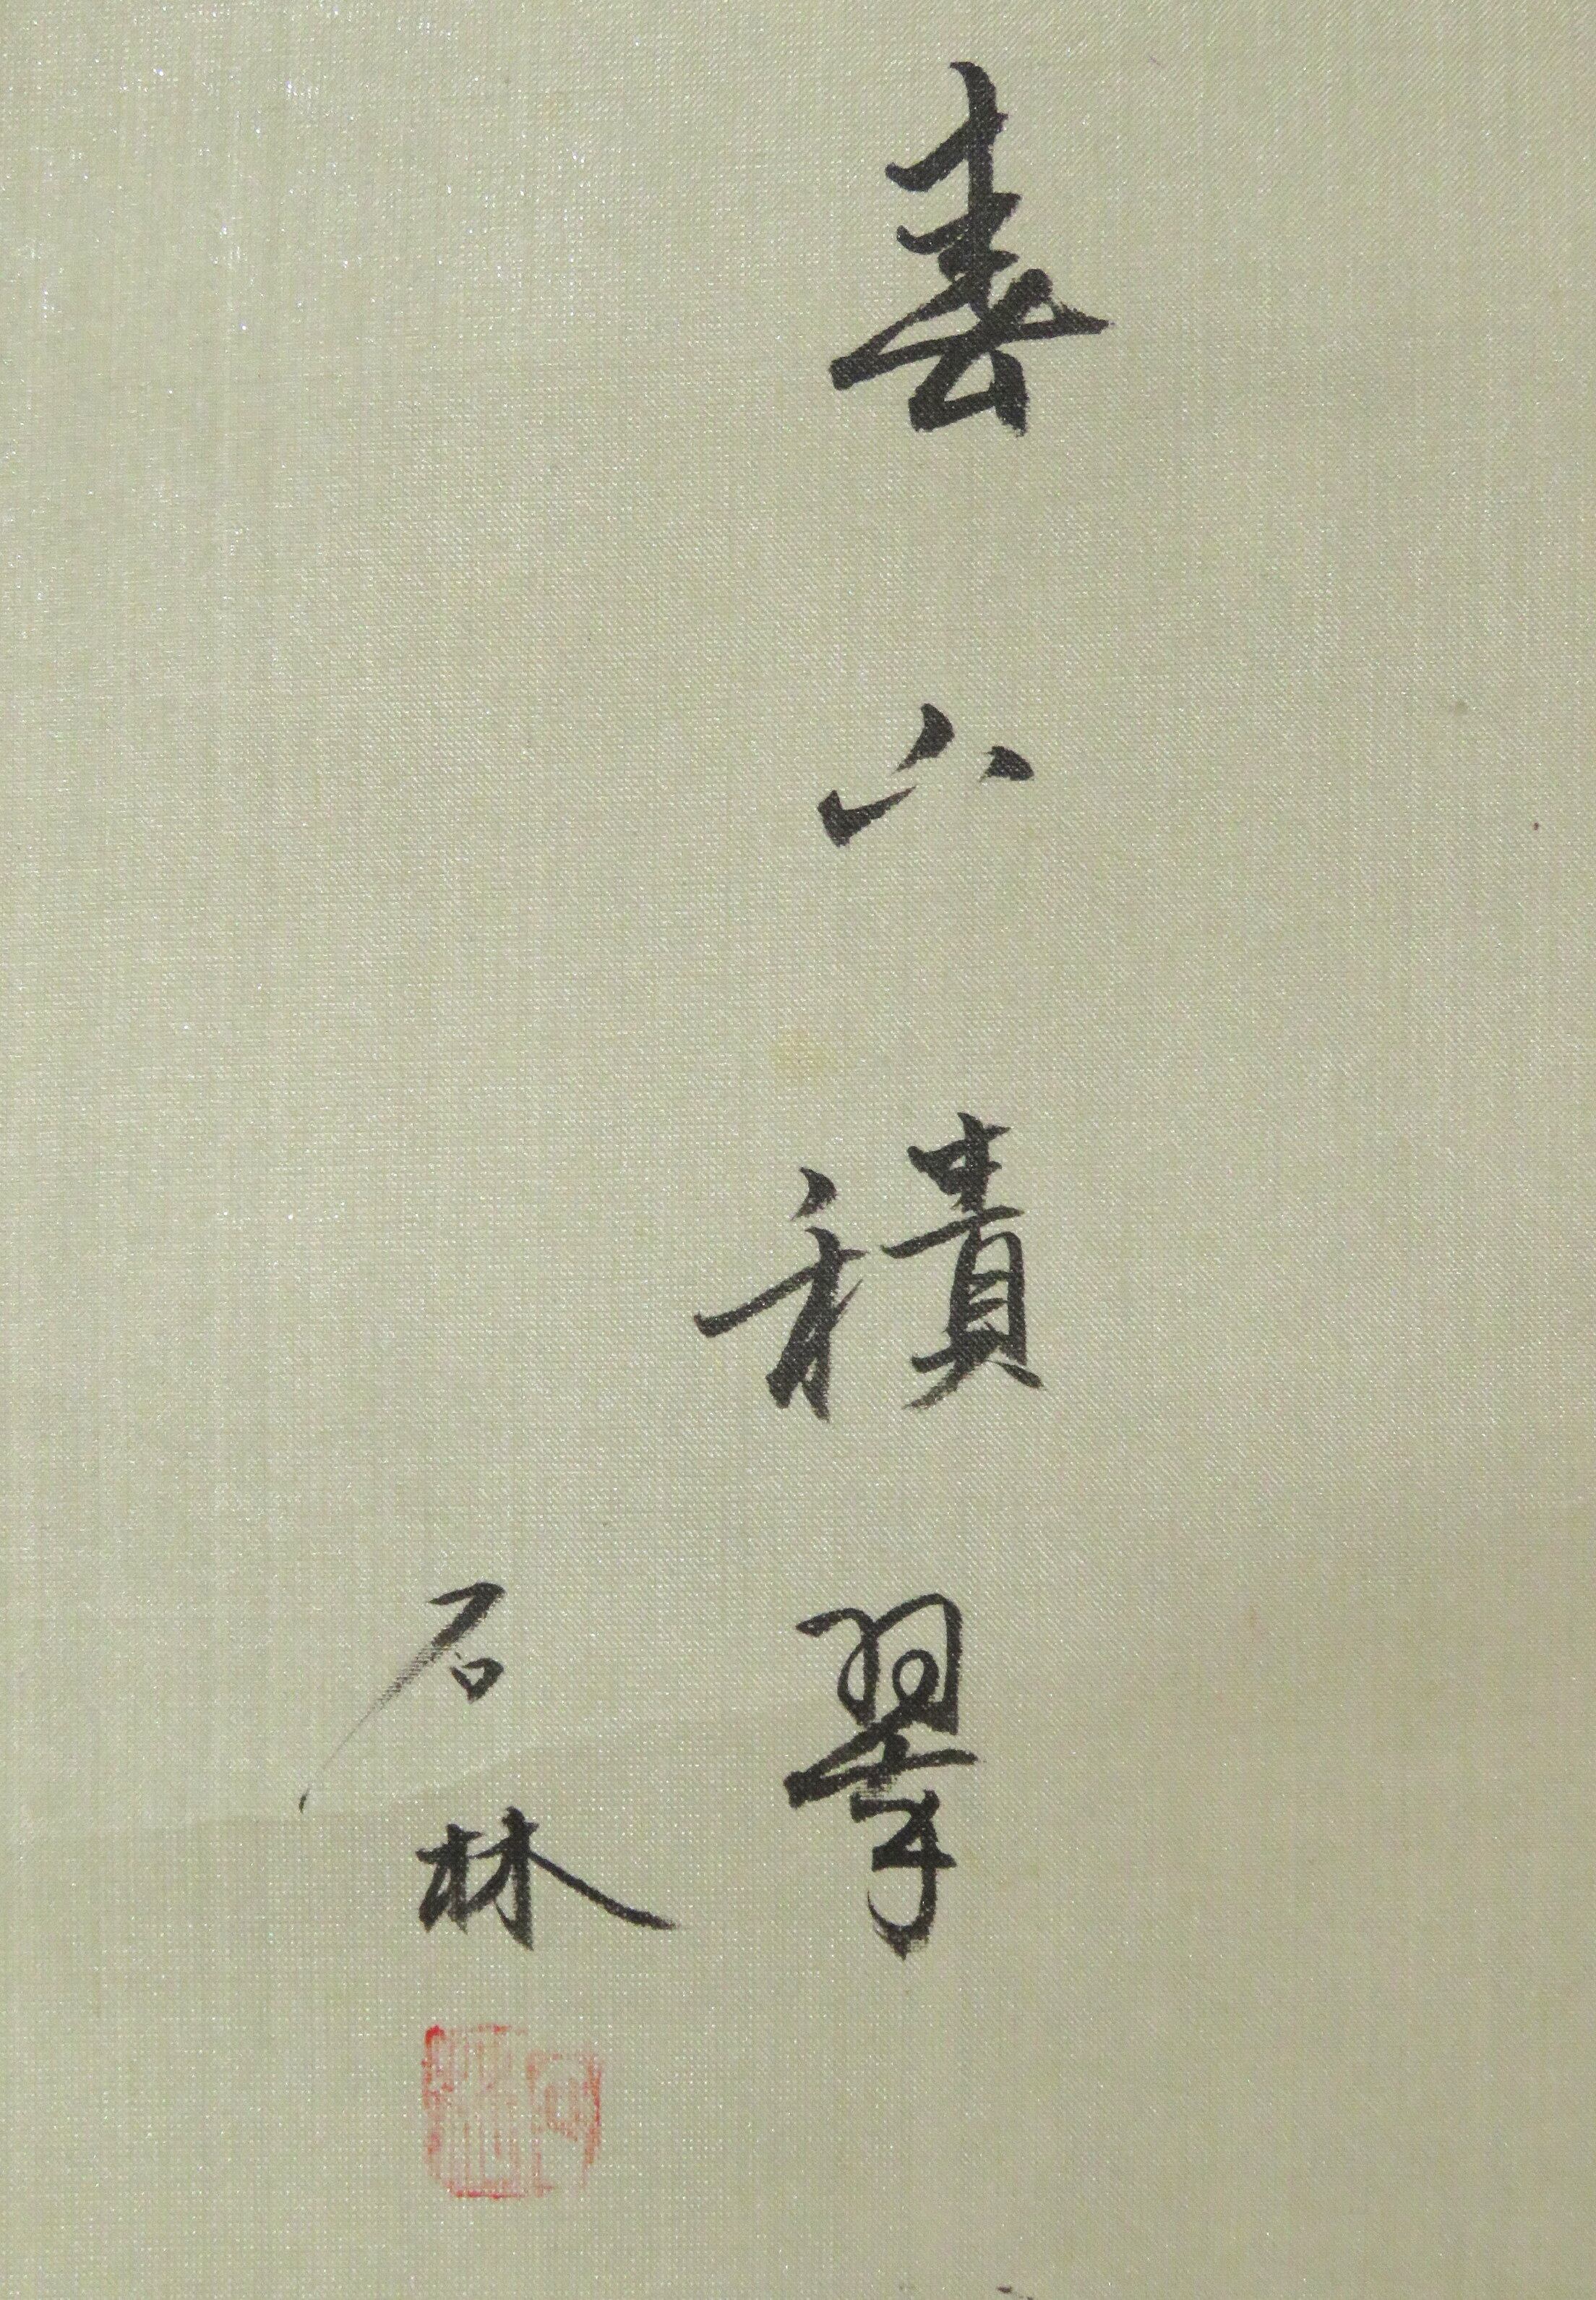 春山積翠
石林